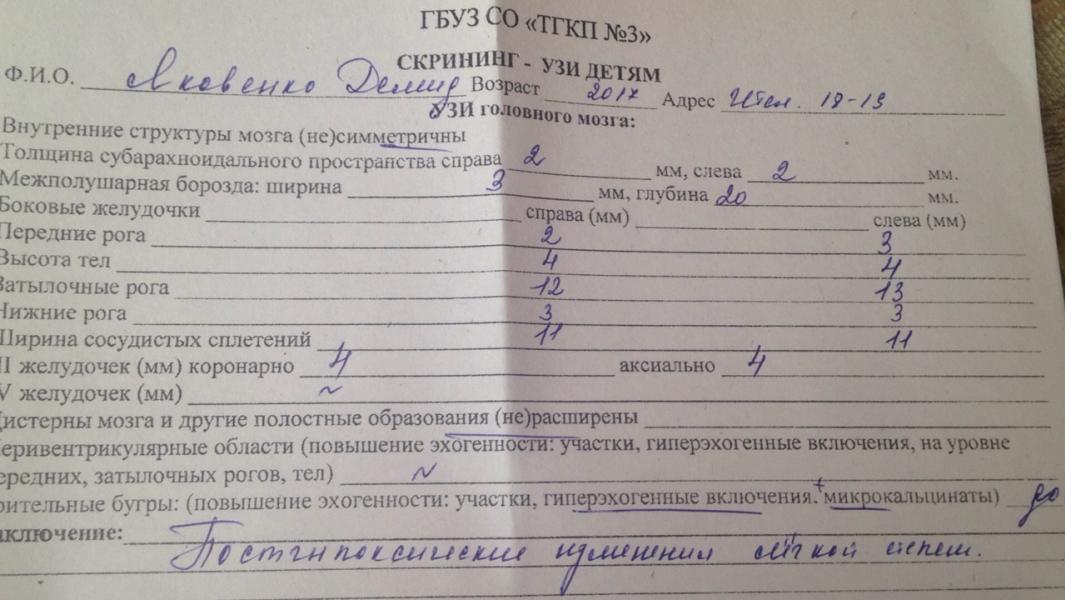 ГБУЗ СО «ТГКП №3»
СКРИНИНГ - УЗИ ДЕТЯМ
Ф.И.О. Яковенко Демид Возраст 2017 Адрес 18-19
УЗИ головного мозга:
Внутренние структуры мозга (не)симметричны
Толщина субарахноидального пространства справа 2 мм, слева 2 мм.
Межполушарная борозда: ширина 3 мм, глубина 20 мм.
Боковые желудочки справа (мм) слева (мм)
Передние рога 2 3
Высота тел 4 4
Затылочные рога 12 13
Нижние рога 3 3
Ширина сосудистых сплетений 11 11
II желудочек (мм) коронарно 4 аксиально 4
V желудочек (мм) ~
Цистерны мозга и другие полостные образования (не)расширены
еривентрикулярные области (повышение эхогенности: участки, гиперэхогенные включения, на уровне
ередних, затылочных рогов, тел) ~
рительные бугры: (повышение эхогенности: участки, гиперэхогенные включения. + микрокальцинаты) до
аключение: Постгипоксические изменения лёгкой степени.